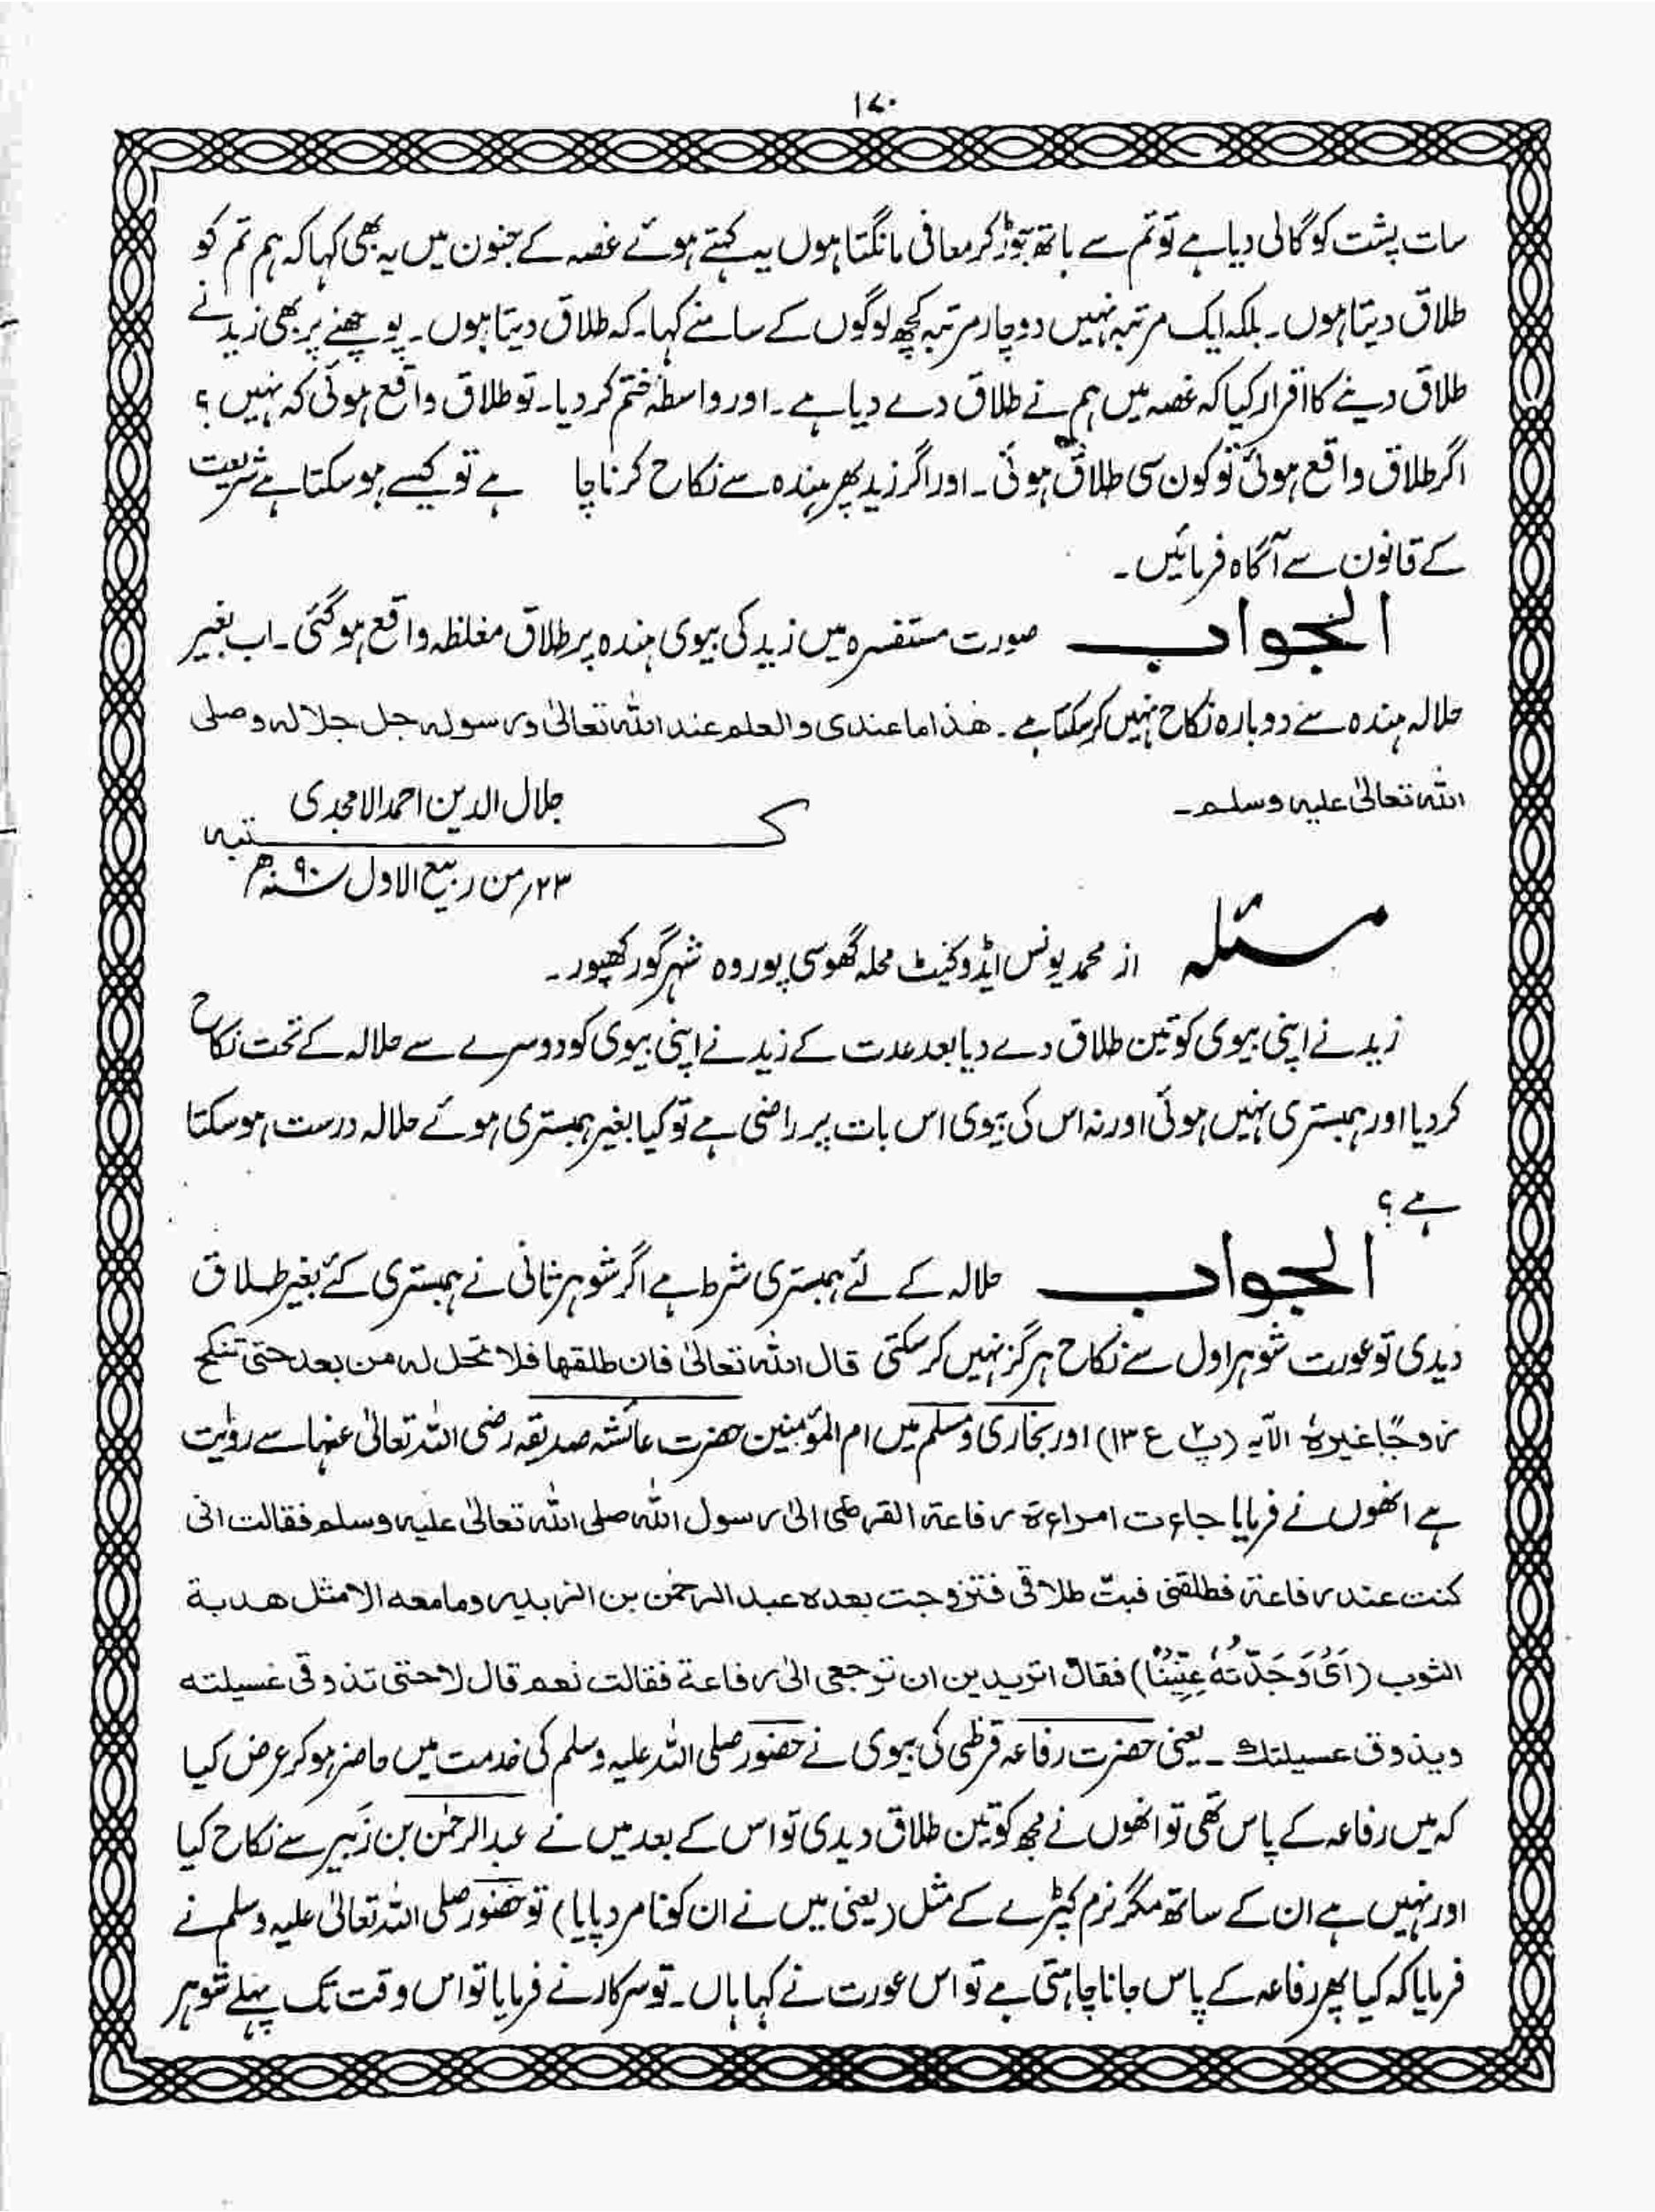 ۱۷۰
سات پشت کو گالی دیا ہے تو تم سے ہاتھ جوڑ کر معافی مانگتا ہوں یہ کہتے ہوئے غصہ کے جنون میں یہ بھی کہا کہ ہم تم کو
طلاق دیتا ہوں۔ بلکہ ایک مرتبہ نہیں دو چار مرتبہ کچھ لوگوں کے سامنے کہا۔ کہ طلاق دیتا ہوں۔ پوچھنے پر بھی زید نے
طلاق دینے کا اقرار کیا کہ غصہ میں ہم نے طلاق دے دیا ہے۔ اور واسطہ ختم کر دیا۔ تو طلاق واقع ہوئی کہ نہیں ؟
اگر طلاق واقع ہوئی تو کون سی طلاق ہوئی۔ اور اگر زید پھر ہندہ سے نکاح کرنا چا ہے تو کیسے ہو سکتا ہے شریعت
کے قانون سے آگاہ فرمائیں۔
الجواب صورت مستفسرہ میں زید کی بیوی ہندہ پر طلاق مغلظہ واقع ہو گئی۔ اب بغیر
حلالہ ہندہ سے دوبارہ نکاح نہیں کر سکتا ہے۔ ھٰذا ما عندی والعلم عند اللہ تعالیٰ ورسولہ جل جلالہ وصلی
اللہ تعالیٰ علیہ وسلم۔
جلال الدین احمد الامجدی
کتبہ
۲۳؍ من ربیع الاول سنہ ۹۰ھ
مسئلہ از محمد یونس ایڈوکیٹ محلہ گھوسی پوروہ شہر گورکھپور۔
زید نے اپنی بیوی کو تین طلاق دے دیا بعد عدت کے زید نے اپنی بیوی کو دوسرے سے حلالہ کے تحت نکاح
کر دیا اور ہمبستری نہیں ہوئی اور نہ اس کی بیوی اس بات پر راضی ہے تو کیا بغیر ہمبستری ہوئے حلالہ درست ہو سکتا
ہے ؟
الجواب حلالہ کے لئے ہمبستری شرط ہے اگر شوہر ثانی نے ہمبستری کئے بغیر طلاق
دیدی تو عورت شوہر اول سے نکاح ہرگز نہیں کر سکتی قال اللہ تعالیٰ فان طلقھا فلا تحل لہ من بعد حتی تنکح
زوجًا غیرہٗ الآیہ (پ ۲ ع ۱۳) اور بخاری ومسلم میں ام المؤمنین حضرت عائشہ صدیقہ رضی اللہ تعالیٰ عنہا سے روایت
ہے انھوں نے فرمایا جاءت امراءۃ رفاعۃ القرظی الیٰ رسول اللہ صلی اللہ تعالیٰ علیہ وسلم فقالت انی
کنت عند رفاعۃ فطلقنی فبتّ طلاقی فتزوجت بعدہ عبد الرحمٰن بن الزبیر وما معہ الا مثل ھدبۃ
الثوب (اَیْ وَجَدْتُّہٗ عِنِّیْنًا) فقال اتریدین ان ترجعی الیٰ رفاعۃ فقالت نعم قال لا حتی تذوقی عسیلتہ
ویذوق عسیلتک۔ یعنی حضرت رفاعہ قرظی کی بیوی نے حضور صلی اللہ علیہ وسلم کی خدمت میں حاضر ہو کر عرض کیا
کہ میں رفاعہ کے پاس تھی تو انھوں نے مجھ کو تین طلاق دیدی تو اس کے بعد میں نے عبد الرحمٰن بن زَبیر سے نکاح کیا
اور نہیں ہے ان کے ساتھ مگر نرم کپڑے کے مثل (یعنی میں نے ان کو نامرد پایا) تو حضور صلی اللہ تعالیٰ علیہ وسلم نے
فرمایا کہ کیا پھر رفاعہ کے پاس جانا چاہتی ہے تو اس عورت نے کہا ہاں۔ تو سرکار نے فرمایا تو اس وقت تک پہلے شوہر